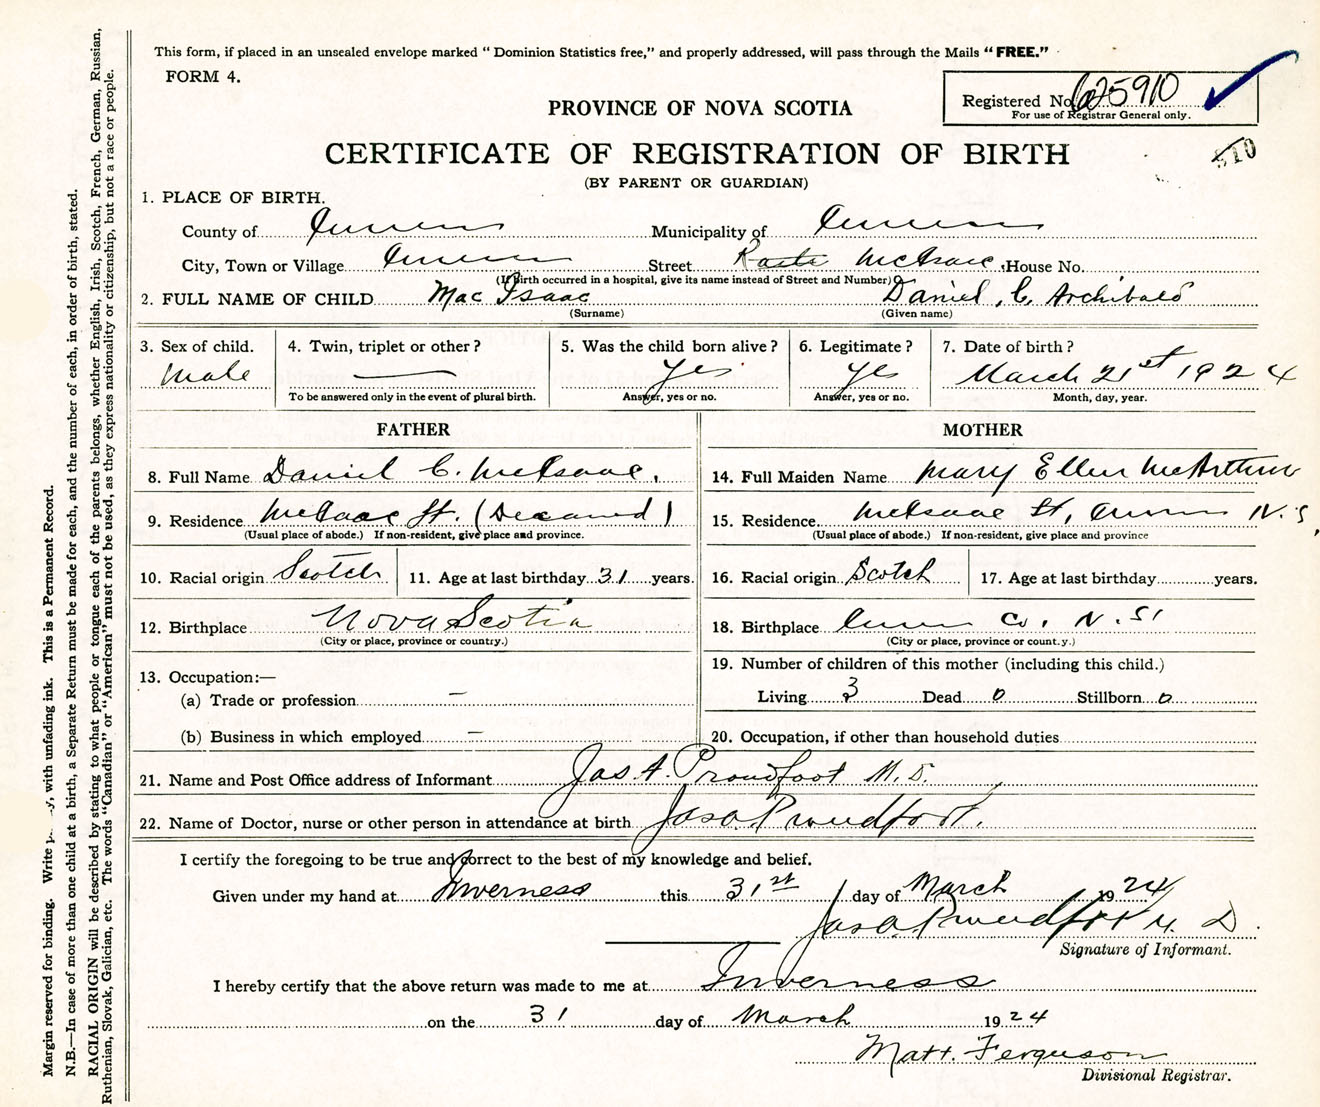 This form, if placed in an unsealed envelope marked "Dominion Statistics free," and properly addressed, will pass through the Mails "FREE."
FORM 4.
Registered No. 625910
For use of Registrar General only.
PROVINCE OF NOVA SCOTIA
CERTIFICATE OF REGISTRATION OF BIRTH
510
(BY PARENT OR GUARDIAN)
1. PLACE OF BIRTH.
County of Inverness Municipality of Inverness
City, Town or Village Inverness Street McIsaac, House No.
(If birth occurred in a hospital, give its name instead of Street and Number)
2. FULL NAME OF CHILD Mac Isaac Daniel, C. Archibald
(Surname) (Given name)
3. Sex of child. 4. Twin, triplet or other? 5. Was the child born alive? 6. Legitimate? 7. Date of birth?
Male — Yes Yes March 21st 1924
To be answered only in the event of plural birth. Answer, yes or no. Answer, yes or no. Month, day, year.
FATHER MOTHER
8. Full Name Daniel C. McIsaac, 14. Full Maiden Name Mary Ellen McArthur
9. Residence McIsaac St. (Deceased) 15. Residence McIsaac St, Inverness N.S,
(Usual place of abode.) If non-resident, give place and province. (Usual place of abode.) If non-resident, give place and province
10. Racial origin Scotch 11. Age at last birthday 31 years. 16. Racial origin Scotch 17. Age at last birthday years.
12. Birthplace Nova Scotia 18. Birthplace Inverness Co. N.S.
(City or place, province or country.) (City or place, province or count.y.)
19. Number of children of this mother (including this child.)
13. Occupation:—
(a) Trade or profession — Living 3 Dead 0 Stillborn 0
(b) Business in which employed — 20. Occupation, if other than household duties
21. Name and Post Office address of Informant Jas. A. Proudfoot M.D.
22. Name of Doctor, nurse or other person in attendance at birth Jas A Proudfoot.
I certify the foregoing to be true and correct to the best of my knowledge and belief.
Given under my hand at Inverness this 31st day of March 1924
Jas A. Proudfoot M. D.
Signature of Informant.
I hereby certify that the above return was made to me at Inverness
on the 31 day of March 1924
Matt. Ferguson
Divisional Registrar.
Margin reserved for binding. Write y, with unfading ink. This is a Permanent Record.
N.B.—In case of more than one child at a birth, a Separate Return must be made for each, and the number of each, in order of birth, stated.
RACIAL ORIGIN will be described by stating to what people or tongue each of the parents belongs, whether English, Irish, Scotch, French, German, Russian,
Ruthenian, Slovak, Galician, etc. The words "Canadian" or "American" must not be used, as they express nationality or citizenship, but not a race or people.